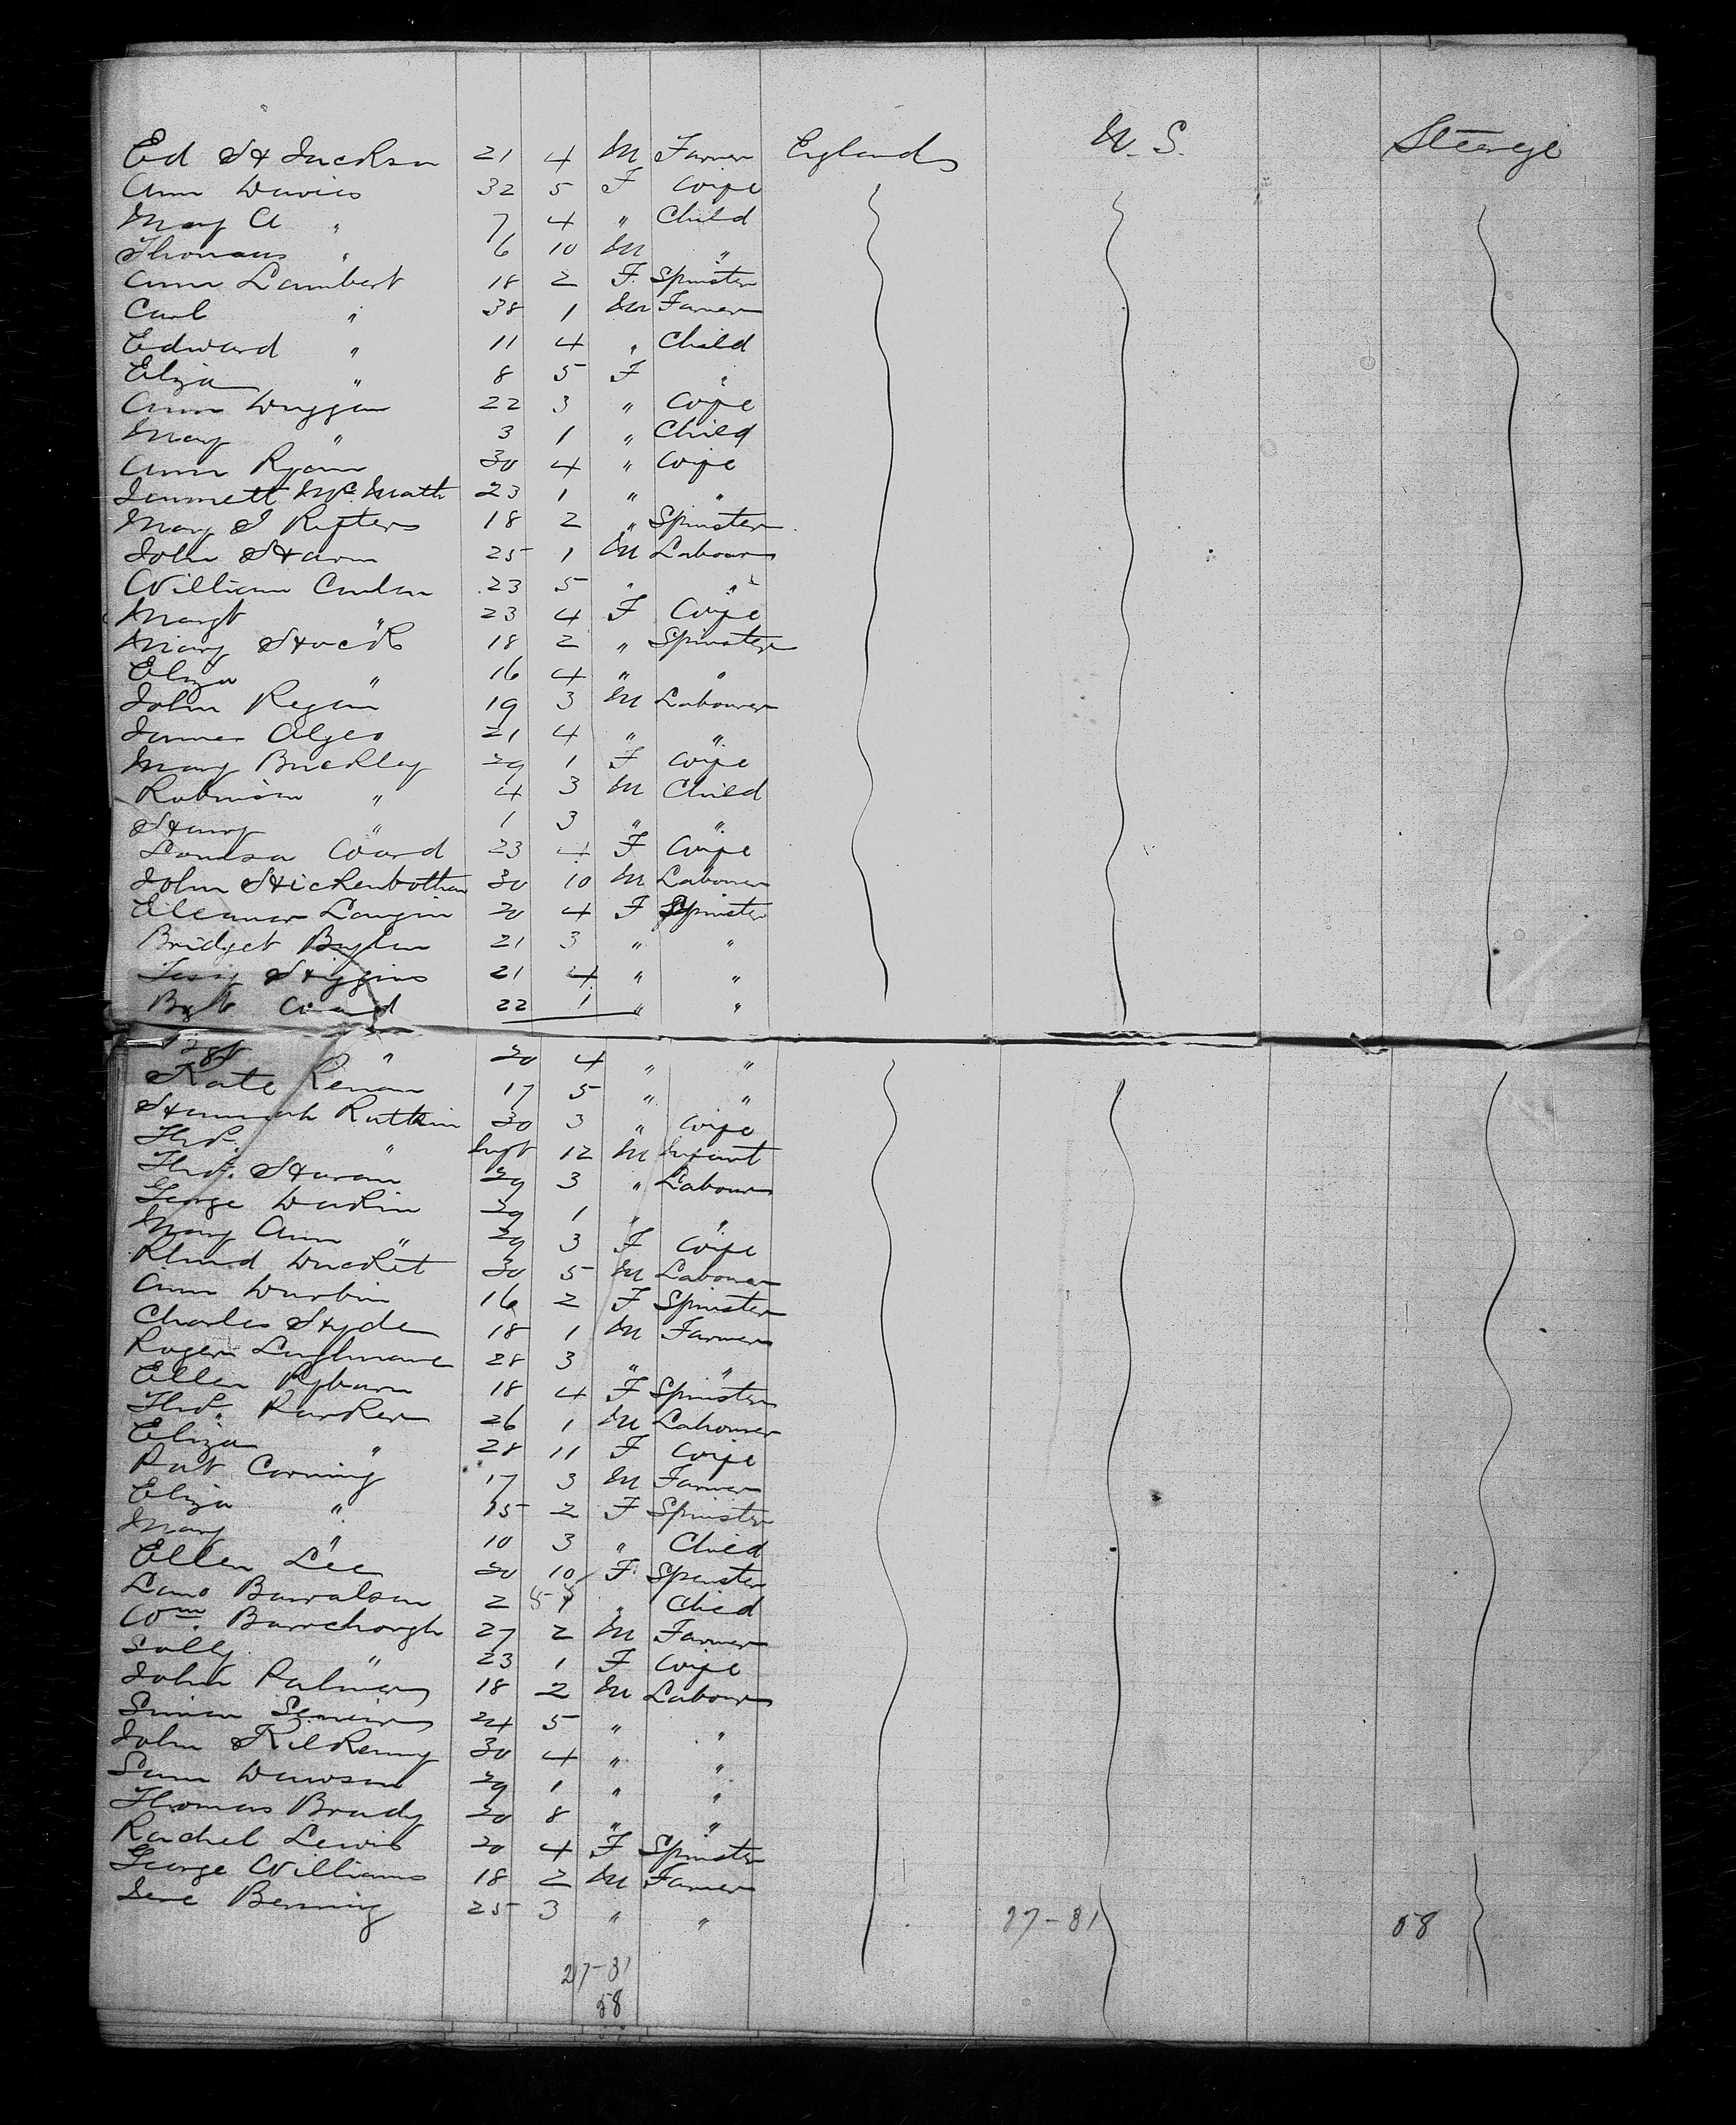 Ed H Jackson 21 4 M Farmer England U.S. Steerge
Ann Davies 32 5 F Wife
Mary A " 7 4 " Child
Thomas " 6 10 M "
Ann Lambert 18 2 F Spinster
Carl " 38 1 M Farmer
Edward " 11 4 " Child
Eliza " 8 5 F "
Ann Duggan 22 3 " Wife
Mary " 3 1 " Child
Ann Ryan 30 4 " Wife
Jannett McMath 23 1 " "
Mary J 18 2 " Spinster
John Harn 25 1 M Labourer
William 23 5 " "
Margt " 23 4 F Wife
Mary Hock 18 2 " Spinster
Eliza " 16 4 " "
John Regan 19 3 M Labourer
James Algeo 21 4 " "
Mary Buckley 29 1 F Wife
Robinson " 4 3 M Child
Harry " 1 3 " "
Louisa Ward 23 4 F Wife
John Hickenbotham 30 10 M Labourer
Eleanor 20 4 F Spinster
Bridget 21 3 " "
Higgins 21 4 " "
Bgt Ward 22 1 " "
" 20 4 " "
Kate Renan 17 5 " "
Hannah Rutkin 30 3 " Wife
Thos. " Inft 12 M Infant
Thos. Haran 29 3 " Labourer
George Dakin 29 1 " "
Mary Ann " 29 3 F Wife
Richd Ducket 30 5 M Labourer
Ann Durbin 16 2 F Spinster
Charles Hyde 18 1 M Farmer
Roger 28 3 " "
Ellen 18 4 F Spinster
Thos. Parker 26 1 M Labourer
Eliza " 28 11 F Wife
Pat Corning 17 3 M Farmer
Eliza " 15 2 F Spinster
Mary " 10 3 " Child
Ellen Lee 20 10 F Spinster
2 " Child
Wm. Barrclough 27 2 M Farmer
Sally " 23 1 F Wife
John Palmer 18 2 M Labourer
Simon Senior 24 5 " "
John Kilkenny 30 4 " "
Sam Dawson 29 1 " "
Thomas Brady 20 8 " "
Rachel Lewis 20 4 F Spinster
George Williams 18 2 M Farmer
Jere Benning 25 3 " " 27-31 58
27-31
58